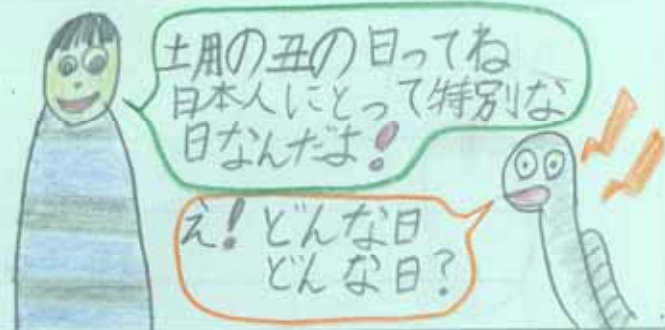 土用の丑の日ってね
日本人にとって特別な
日なんだよ!
え!どんな日
どんな日?